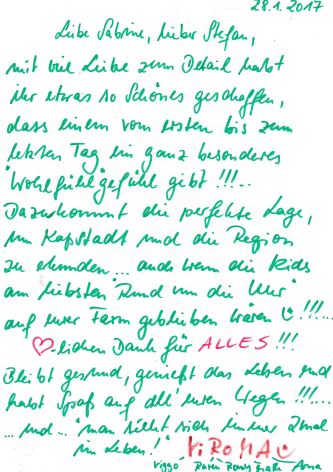 28.1.2017
Liebe Sabine, lieber Stefan,
mit viel Liebe zum Detail habt
ihr etwas so Schönes geschaffen,
dass einem vom ersten bis zum
letzten Tag ein ganz besonderes
"Wohlfühl"gefühl gibt!!!...
Dazukommt die perfekte Lage,
um Kapstadt und die Region
zu erkunden... auch wenn die Kids
am liebsten "Rund um die Uhr"
auf eurer Farm geblieben wären ☺!!!...
♡-lichen Dank für ALLES!!!
Bleibt gesund, genießt das Leben und
habt Spaß auf all' euren Wegen!!!...
... und... "man sieht sich immer 2mal
im Leben!" ViRoMA☺
Viggo